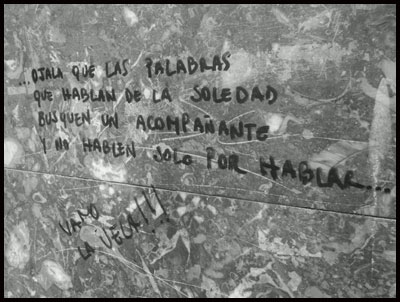 ...OJALA QUE LAS PALABRAS
QUE HABLAN DE LA SOLEDAD
BUSQUEN UN ACOMPAÑANTE
Y NO HABLEN SOLO POR HABLAR...
VAMO
LA VELA!!!